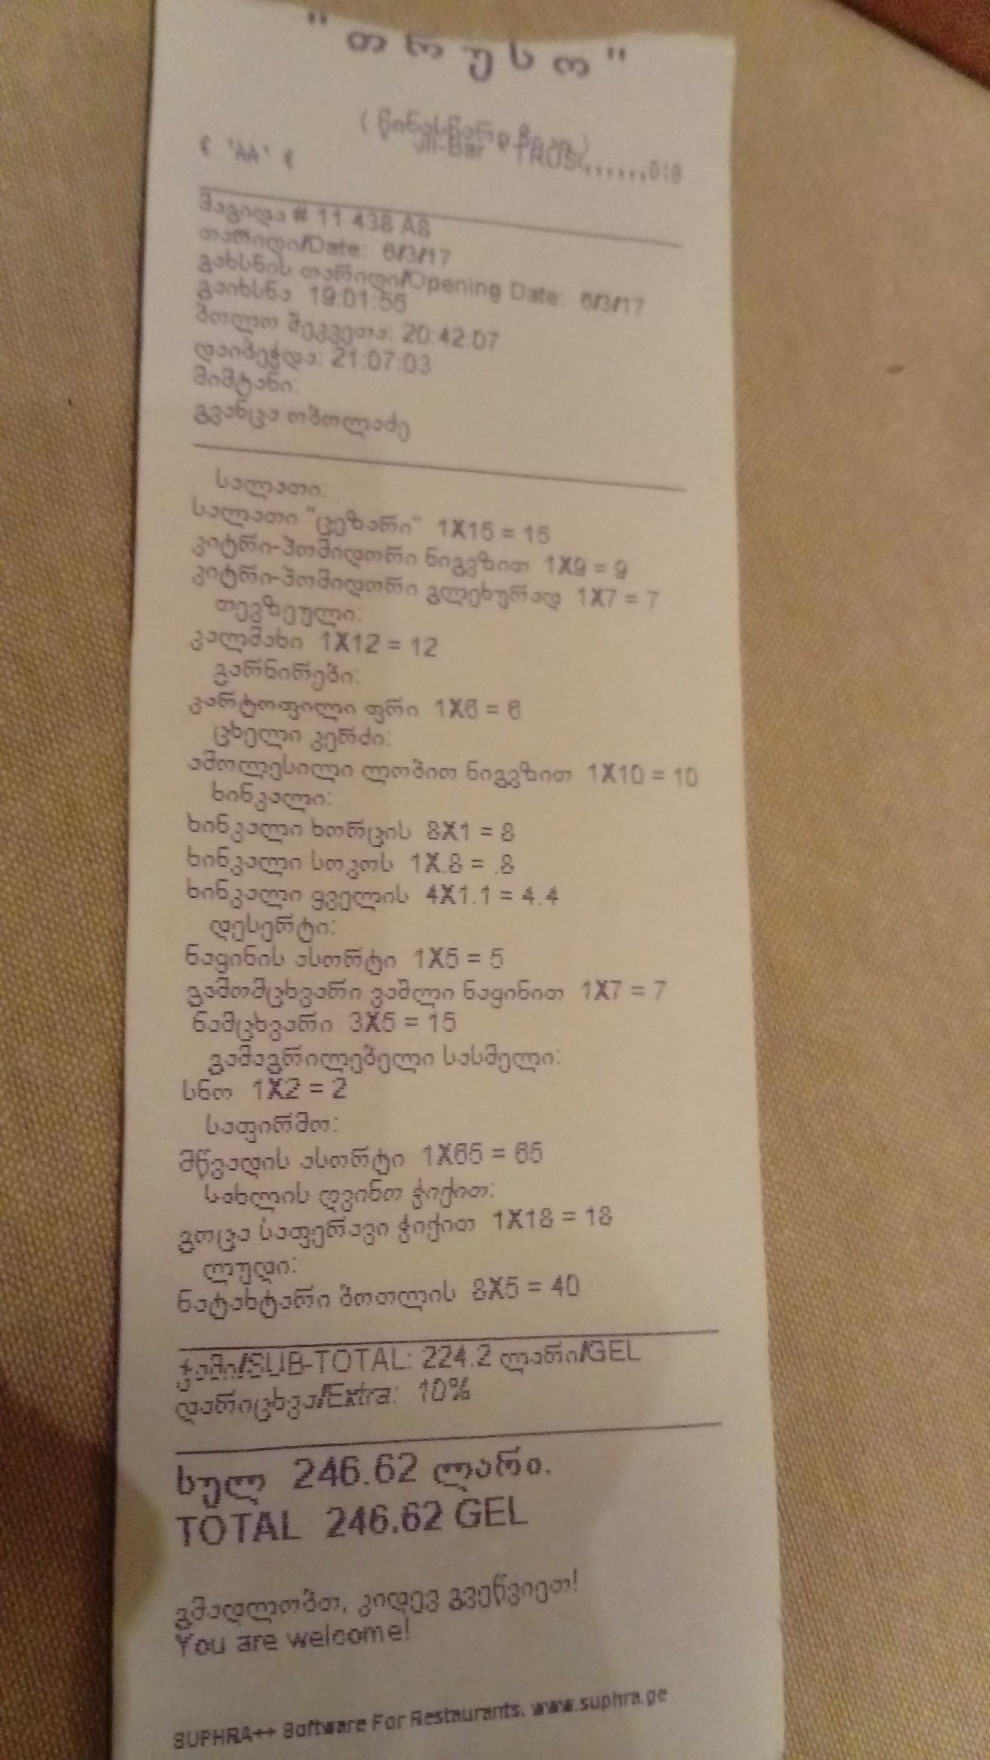 "თრუსო"
' AA '
VII-Bar
მაგიდა # 11 438 A8
თარიღი/Date: 6/3/17
გახსნის თარიღი/Opening Date: 6/3/17
გაიხსნა 19:01:56
ბოლო შეკვეთა: 20:42:07
დაიბეჭდა: 21:07:03
მიმტანი:
გვანცა ობოლაძე
სალათი:
სალათი "ცეზარი" 1X15 = 15
კიტრი-პომიდორი ნიგვზით 1X9 = 9
კიტრი-პომიდორი გლეხურად 1X7 = 7
თევზეული:
კალმახი 1X12 = 12
გარნირები:
კარტოფილი ფრი 1X6 = 6
ცხელი კერძი:
ამოლესილი ლობიო ნიგვზით 1X10 = 10
ხინკალი:
ხინკალი ხორცის 8X1 = 8
ხინკალი სოკოს 1X.8 = .8
ხინკალი ყველის 4X1.1 = 4.4
დესერტი:
ნაყინის ასორტი 1X5 = 5
გამომცხვარი ვაშლი ნაყინით 1X7 = 7
ნამცხვარი 3X5 = 15
გამაგრილებელი სასმელი:
სნო 1X2 = 2
საფირმო:
მწვადის ასორტი 1X65 = 65
სახლის ღვინო ჭიქით:
გოცა საფერავი ჭიქით 1X18 = 18
ლუდი:
ნატახტარი ბოთლის 8X5 = 40
ჯამი/SUB-TOTAL: 224.2 ლარი/GEL
დარიცხვა/Extra: 10%
სულ 246.62 ლარი.
TOTAL 246.62 GEL
გმადლობთ, კიდევ გვეწვიეთ!
You are welcome!
SUPHRA++ Software For Restaurants. www.suphra.ge